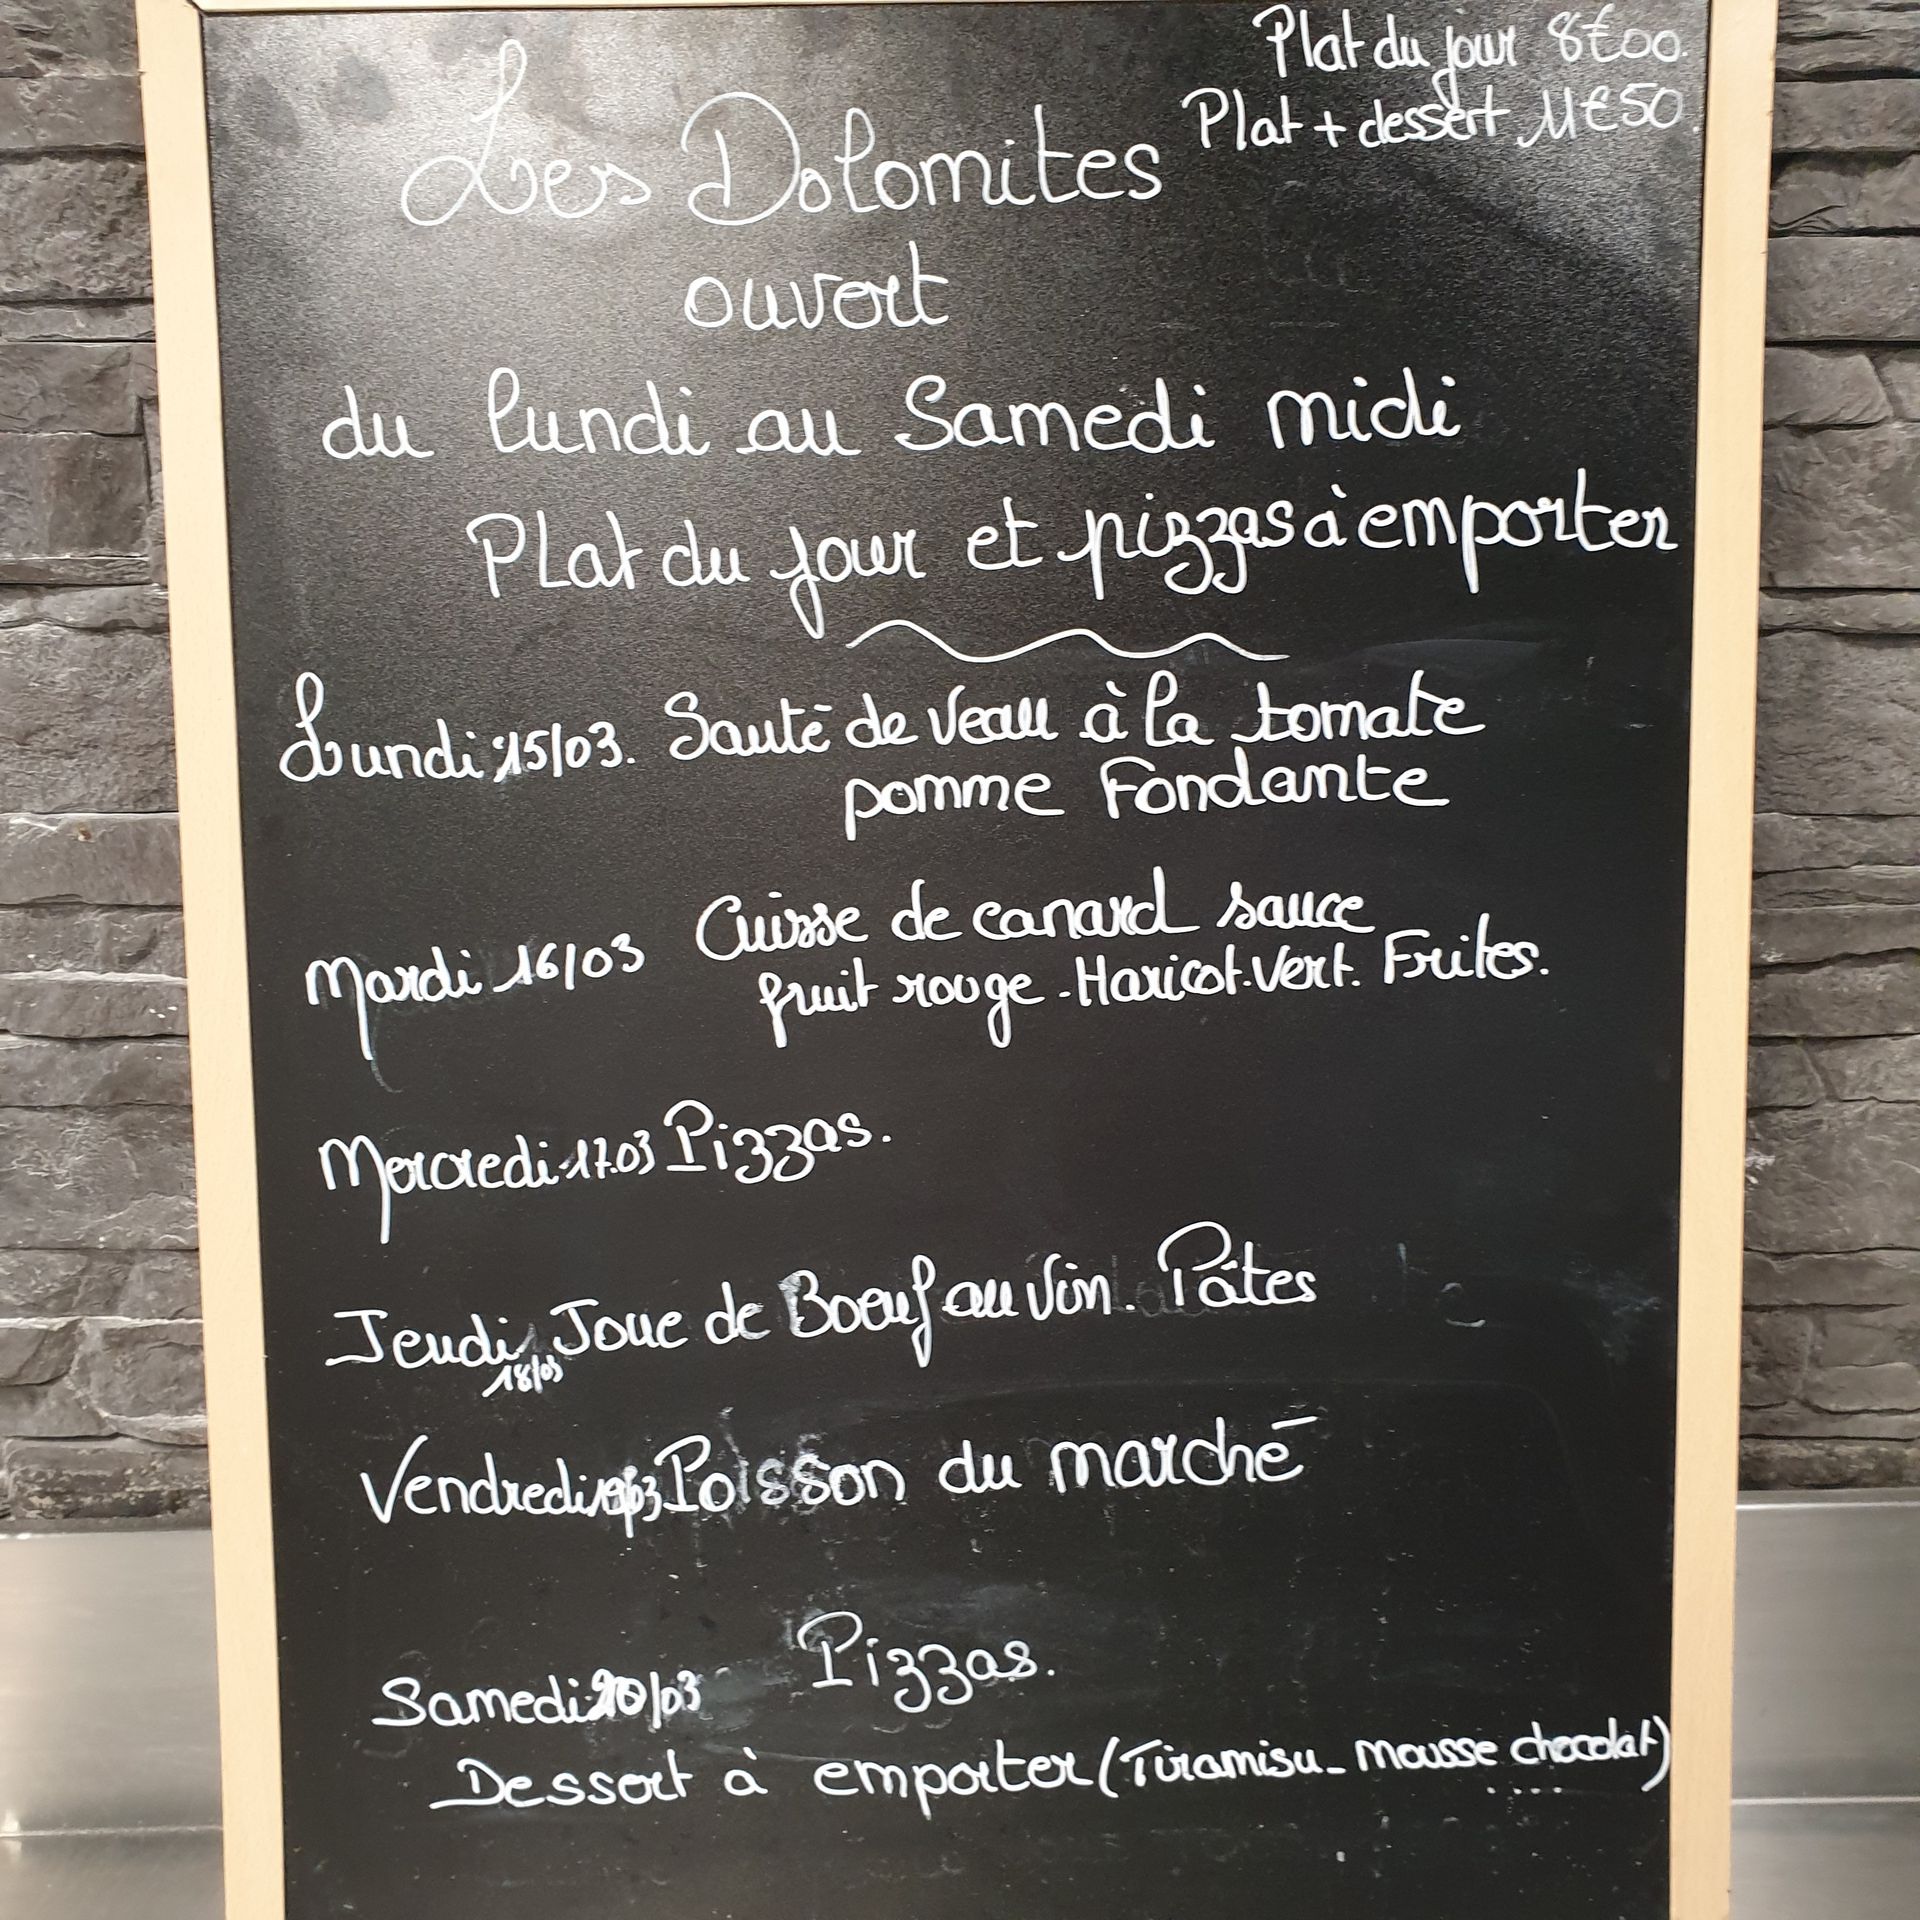 Plat du jour 8€00.
Plat + dessert 11€50.
Les Dolomites
ouvert
du lundi au Samedi midi
Plat du jour et pizzas à emporter
Lundi 15/03. Sauté de veau à la tomate
pomme Fondante
Mardi 16/03 Cuisse de canard sauce
fruit rouge - Haricot. Vert. Frites.
Mercredi 17.03 Pizzas.
Jeudi Joue de Boeuf au Vin. Pâtes
18/03
Vendredi 19/03 Poisson du marché
Samedi 20/03 Pizzas.
Dessert à emporter (Tiramisu - Mousse chocolat)
....